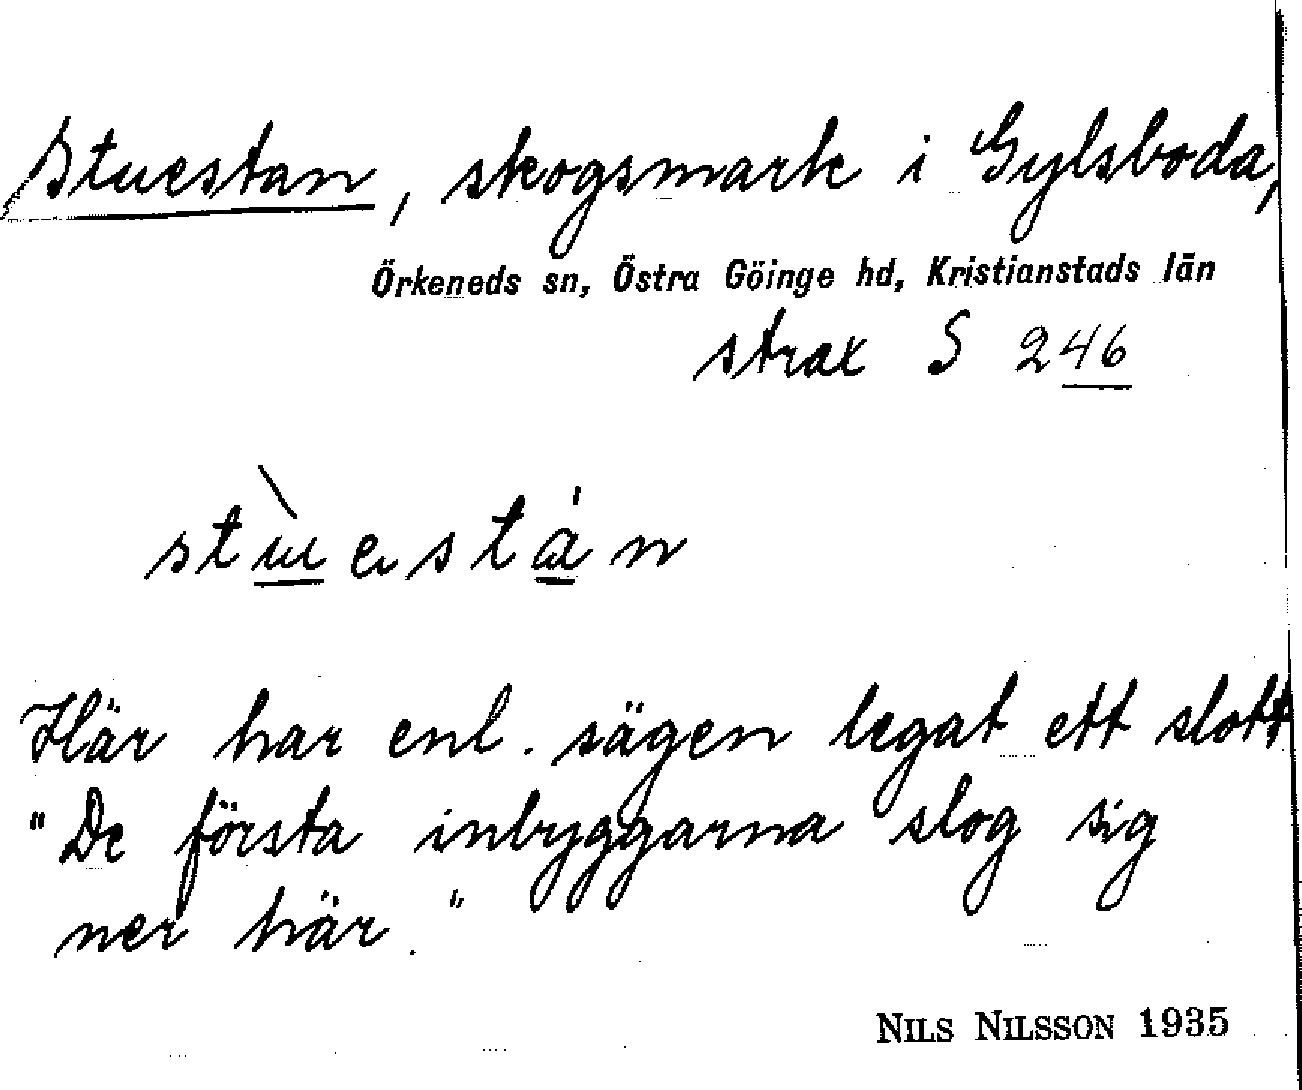 Stuestan, skogsmark i Gylsboda,
Örkeneds sn, Östra Göinge hd, Kristianstads län
strax S 246
Här har enl. sägen legat ett slott
"De första inbyggarna slog sig
ner här."
NILS NILSSON 1935